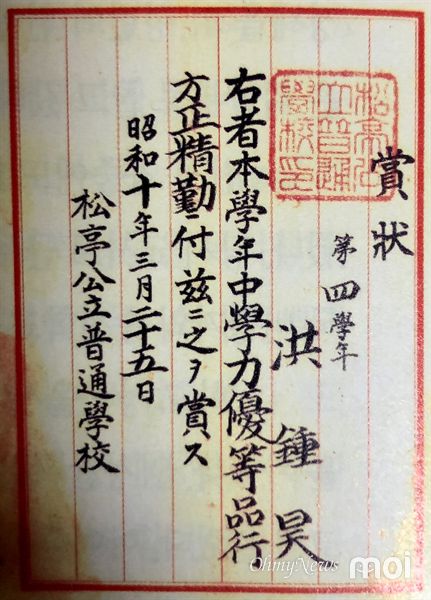 賞狀
第四學年
洪鍾昊
右者本學年中學力優等品行
方正精勤ニ付玆ニ之ヲ賞ス
昭和十年三月二十五日
松亭公立普通學校
松亭公
立普通
學校印
OhmyNews moi